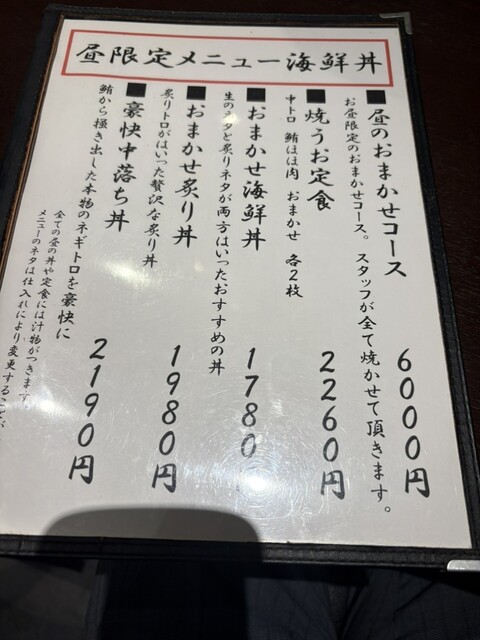 昼限定メニュー海鮮丼
■昼のおまかせコース 6000円
お昼限定のおまかせコース。スタッフが全て焼かせて頂きます。
■焼うお定食 2260円
中トロ 鮪ほほ肉 おまかせ 各2枚
■おまかせ海鮮丼 1780
生のネタと炙りネタが両方はいったおすすめの丼
■おまかせ炙り丼 1980円
炙りトロがはいった贅沢な炙り丼
■豪快中落ち丼 2190円
鮪から掻き出した本物のネギトロを豪快に
全ての昼の丼や定食には汁物がつきます。
メニューのネタは仕入れにより変更する